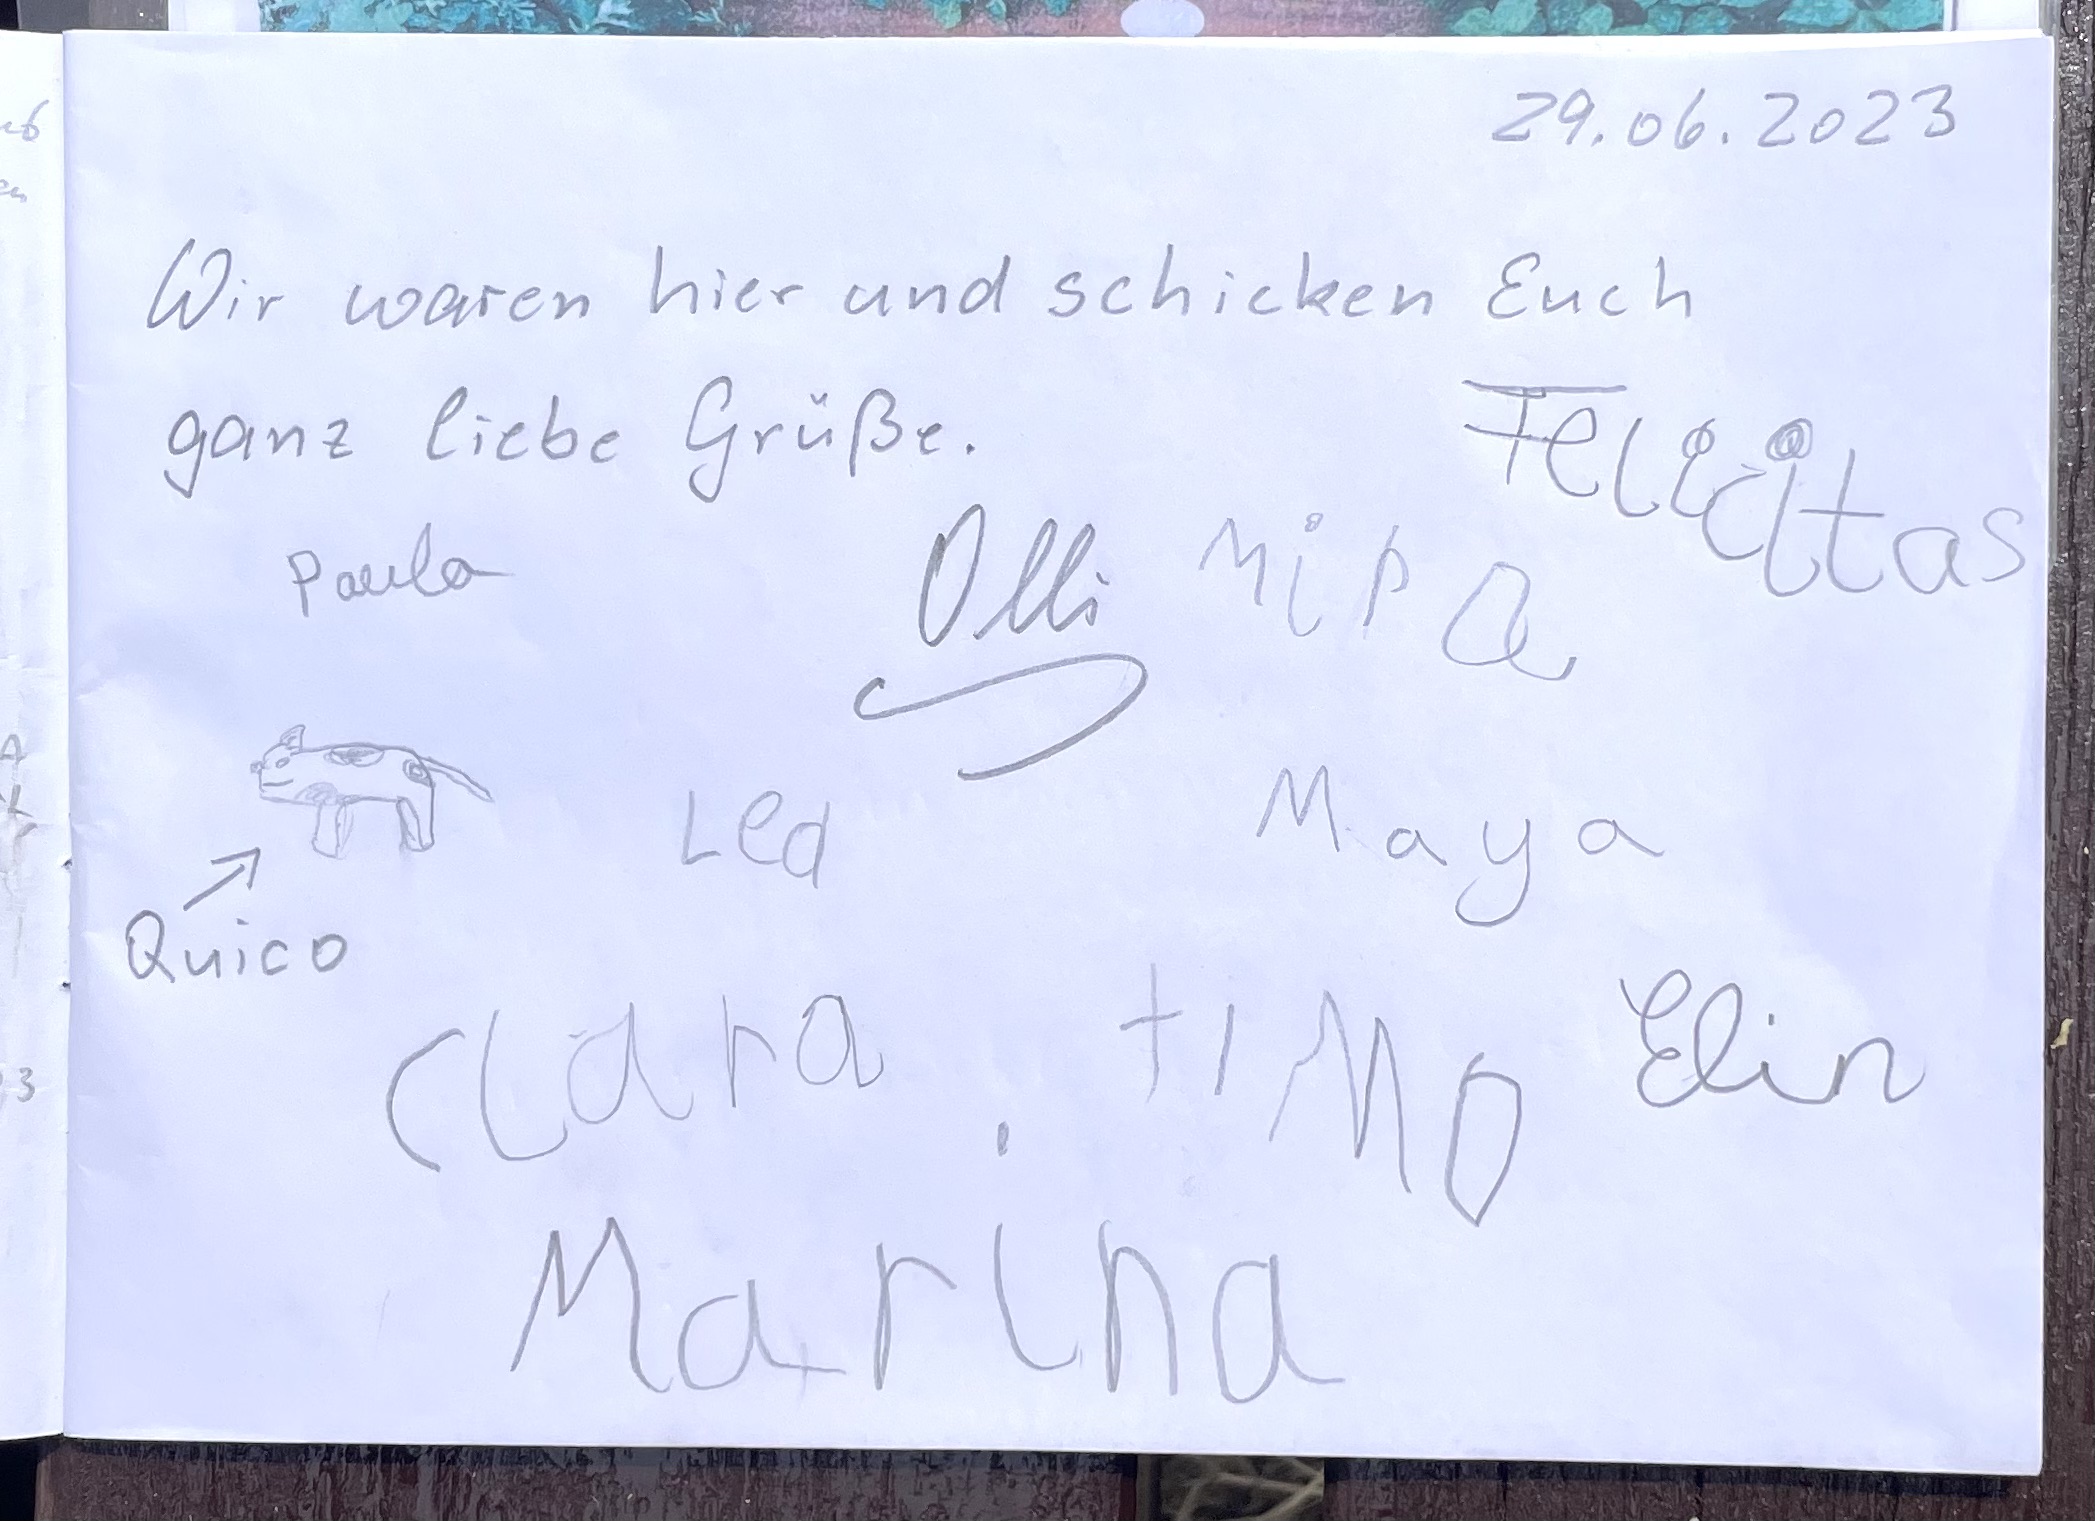 29.06.2023
Wir waren hier und schicken Euch
ganz liebe Grüße.
Felicitas
Paula
Olli
Mira
Lea
Maya
Quico
Clara
tiMo
Elin
Marina